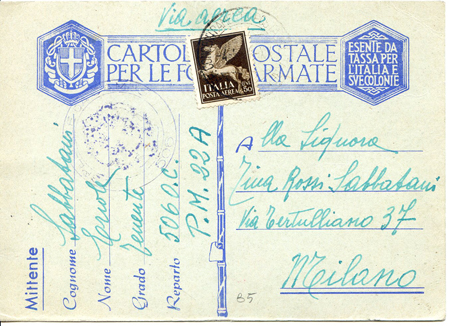 Via aerea
CARTOLINA POSTALE
PER LE FORZE ARMATE
ESENTE DA
TASSA PER
L'ITALIA E
SVE COLONIE
ITALIA
POSTA AEREA C. 50
Mittente
Cognome Sabbatani
Nome
Grado Tenente
Reparto 506 O.C.
P.M. 22A
Alla Signora
Tina Rossi Sabbatani
Via Tertulliano 37
Milano
B5